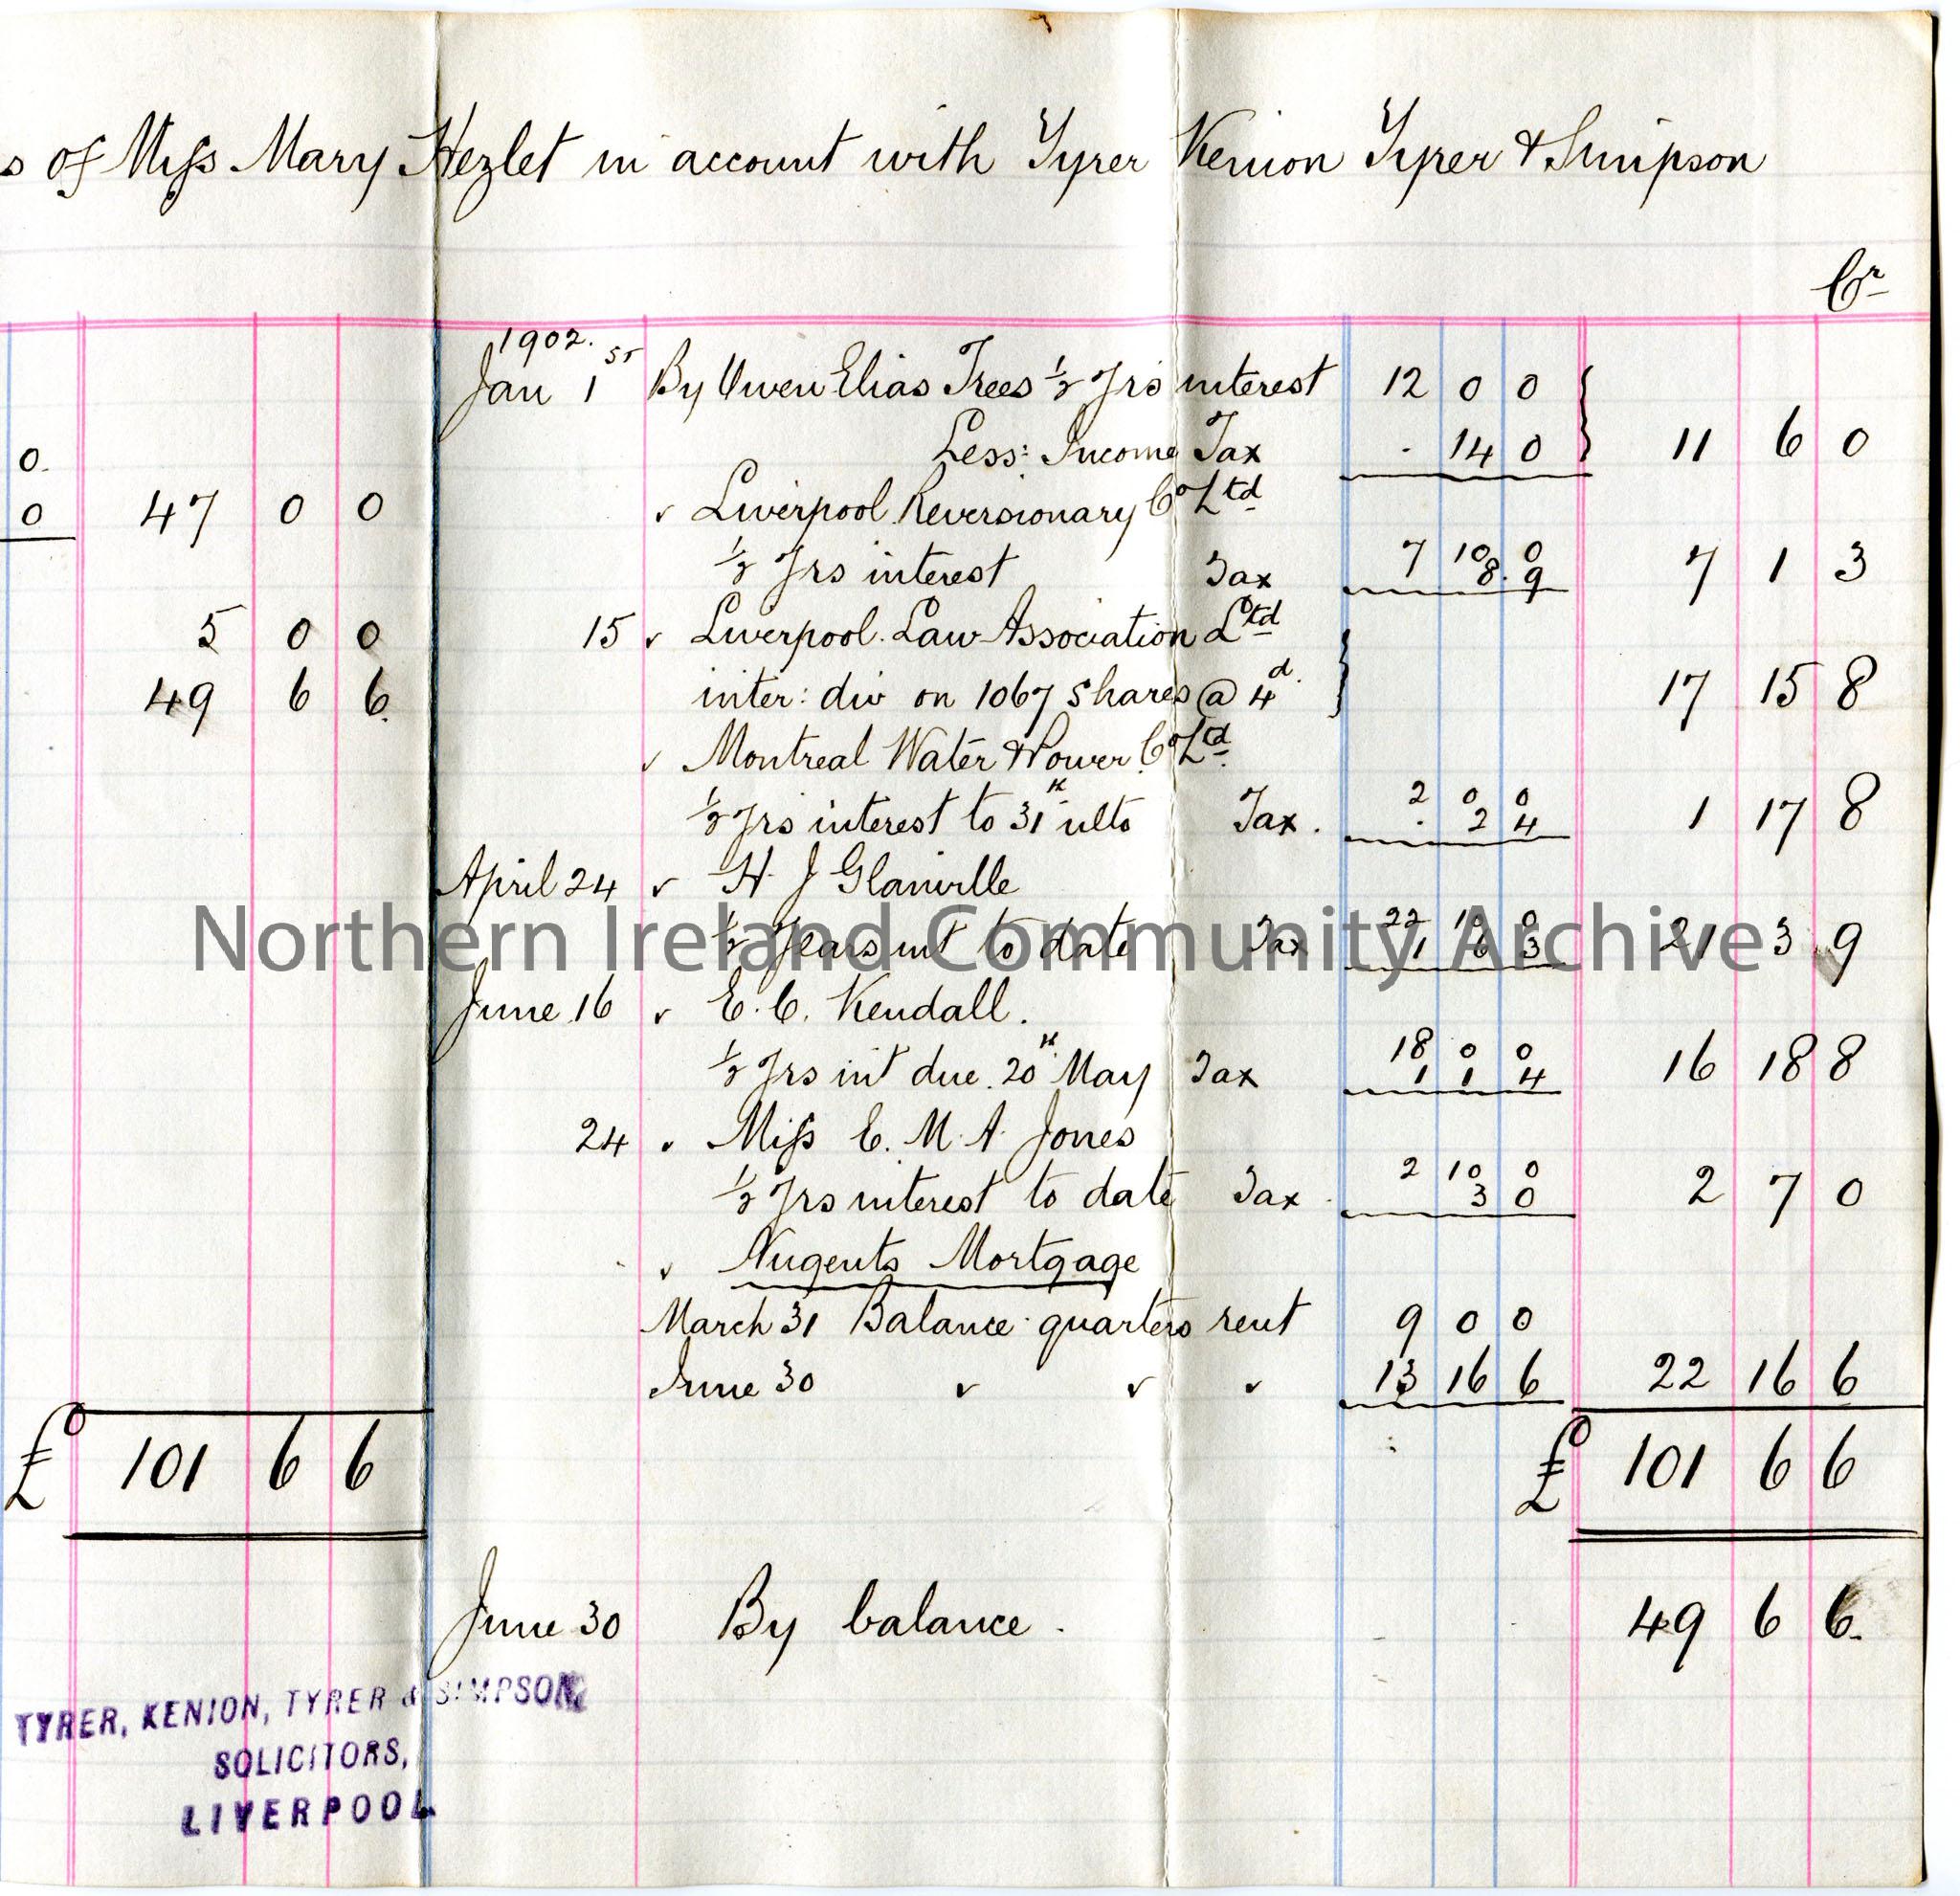 s of Miss Mary Hezlet in account with Tyrer Kenion Tyrer & Simpson
Cr
1902.
Jan 1st By Owen Elias Trees ½ Yrs interest 12 0 0
0. Less: Income Tax . 14 0 11 6 0
0 47 0 0 " Liverpool Reversionary Co Ltd
½ Yrs interest Tax 7 10 0
8. 9 7 1 3
5 0 0 15 " Liverpool Law Association Ltd
49 6 6. inter: div on 1067 shares @ 4d. 17 15 8
" Montreal Water & Power Co Ltd.
½ Yrs interest to 31st ulto Tax. 2 0 0
. 2 4 1 17 8
April 24 " H. J Glanville
½ Years int to date Tax 22 10 0
1 6 3 21 3 9
Northern Ireland Community Archive
June 16 " E. C. Kendall.
½ Yrs int due 20th May Tax 18 0 0
1 1 4 16 18 8
24 " Miss C. M. A. Jones
½ Yrs interest to date Tax 2 10 0
3 0 2 7 0
" Nugents Mortgage
March 31 Balance quarters rent 9 0 0
June 30 " " " 13 16 6 22 16 6
£ 101 6 6 £ 101 6 6
June 30 By balance. 49 6 6.
TYRER, KENION, TYRER & SIMPSON,
SOLICITORS,
LIVERPOOL